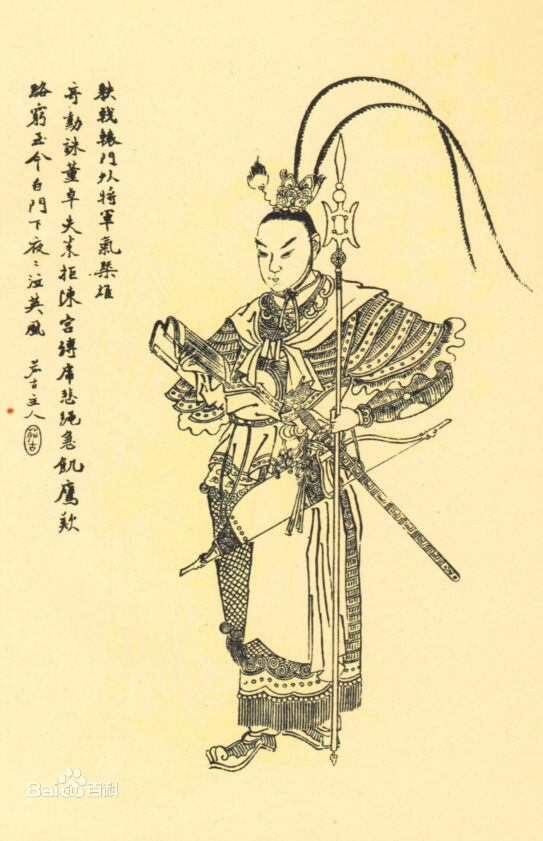 戟轅門外將軍氣槩雄
奇勳誅董卓失策拒陳宮縛虎悲繩急飢鷹歎
路窮至今白門下夜々泣英風 古主人
Bai百科